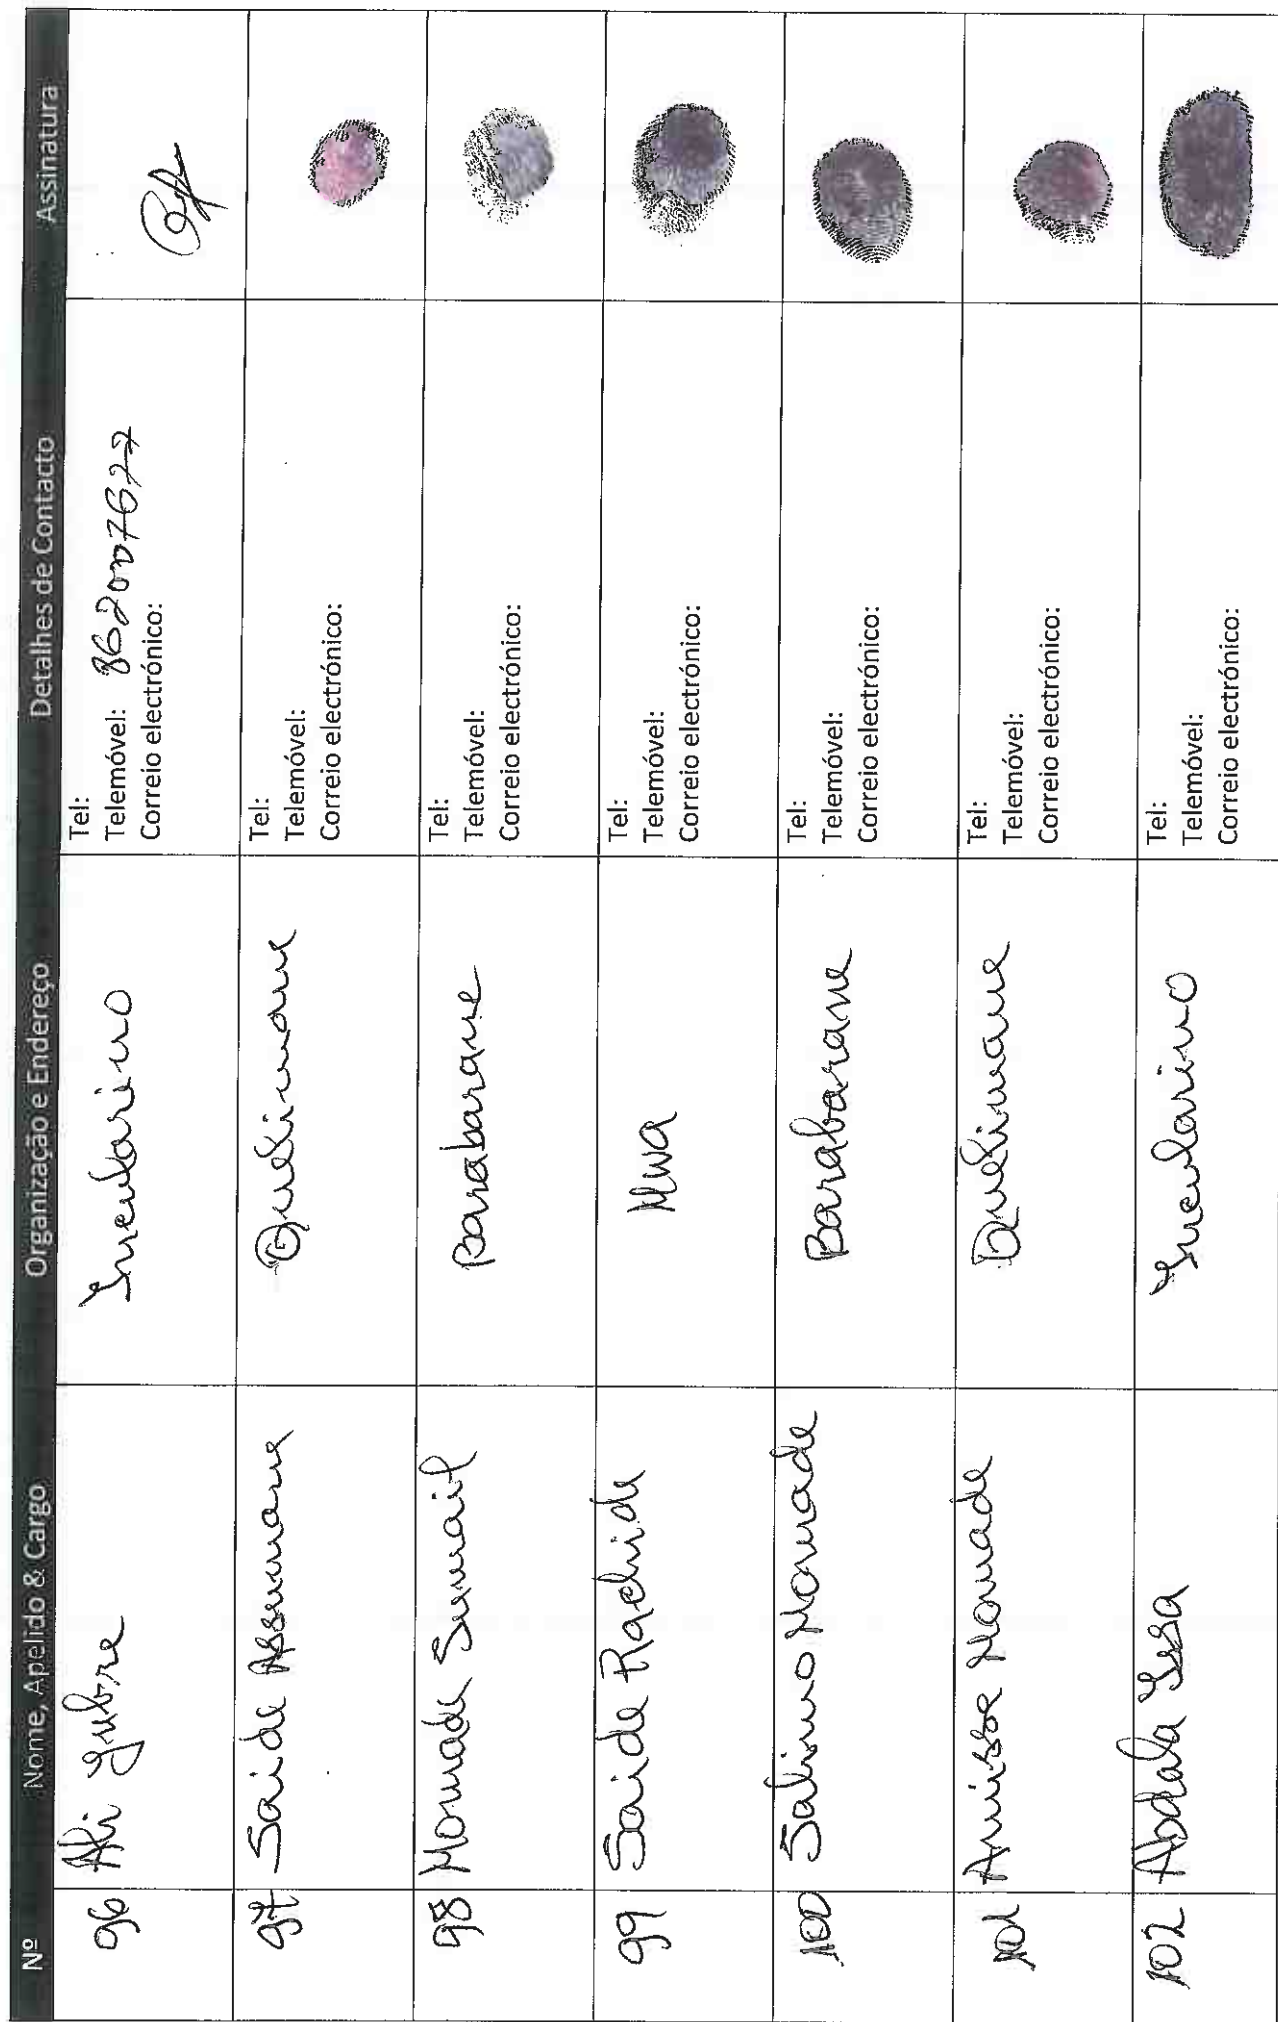 Nº Nome, Apelido & Cargo Organização e Endereço Detalhes de Contacto Assinatura
96 Ali Jubre Incularino Tel:
Telemóvel: 862007677
Correio electrónico:
97 Saide Assumane Quelimane Tel:
Telemóvel:
Correio electrónico:
98 Momade Sumail Barabarane Tel:
Telemóvel:
Correio electrónico:
99 Saide Rachide Mwa Tel:
Telemóvel:
Correio electrónico:
100 Salimo Momade Barabarane Tel:
Telemóvel:
Correio electrónico:
101 Amisse Momade Quelimane Tel:
Telemóvel:
Correio electrónico:
102 Abdala Issa Incularino Tel:
Telemóvel:
Correio electrónico: